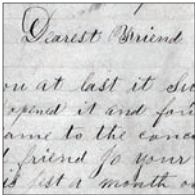 Dearest Friend
ou at last it Su
opened it and fou
ame to the conc
d friend so your
is jest a month